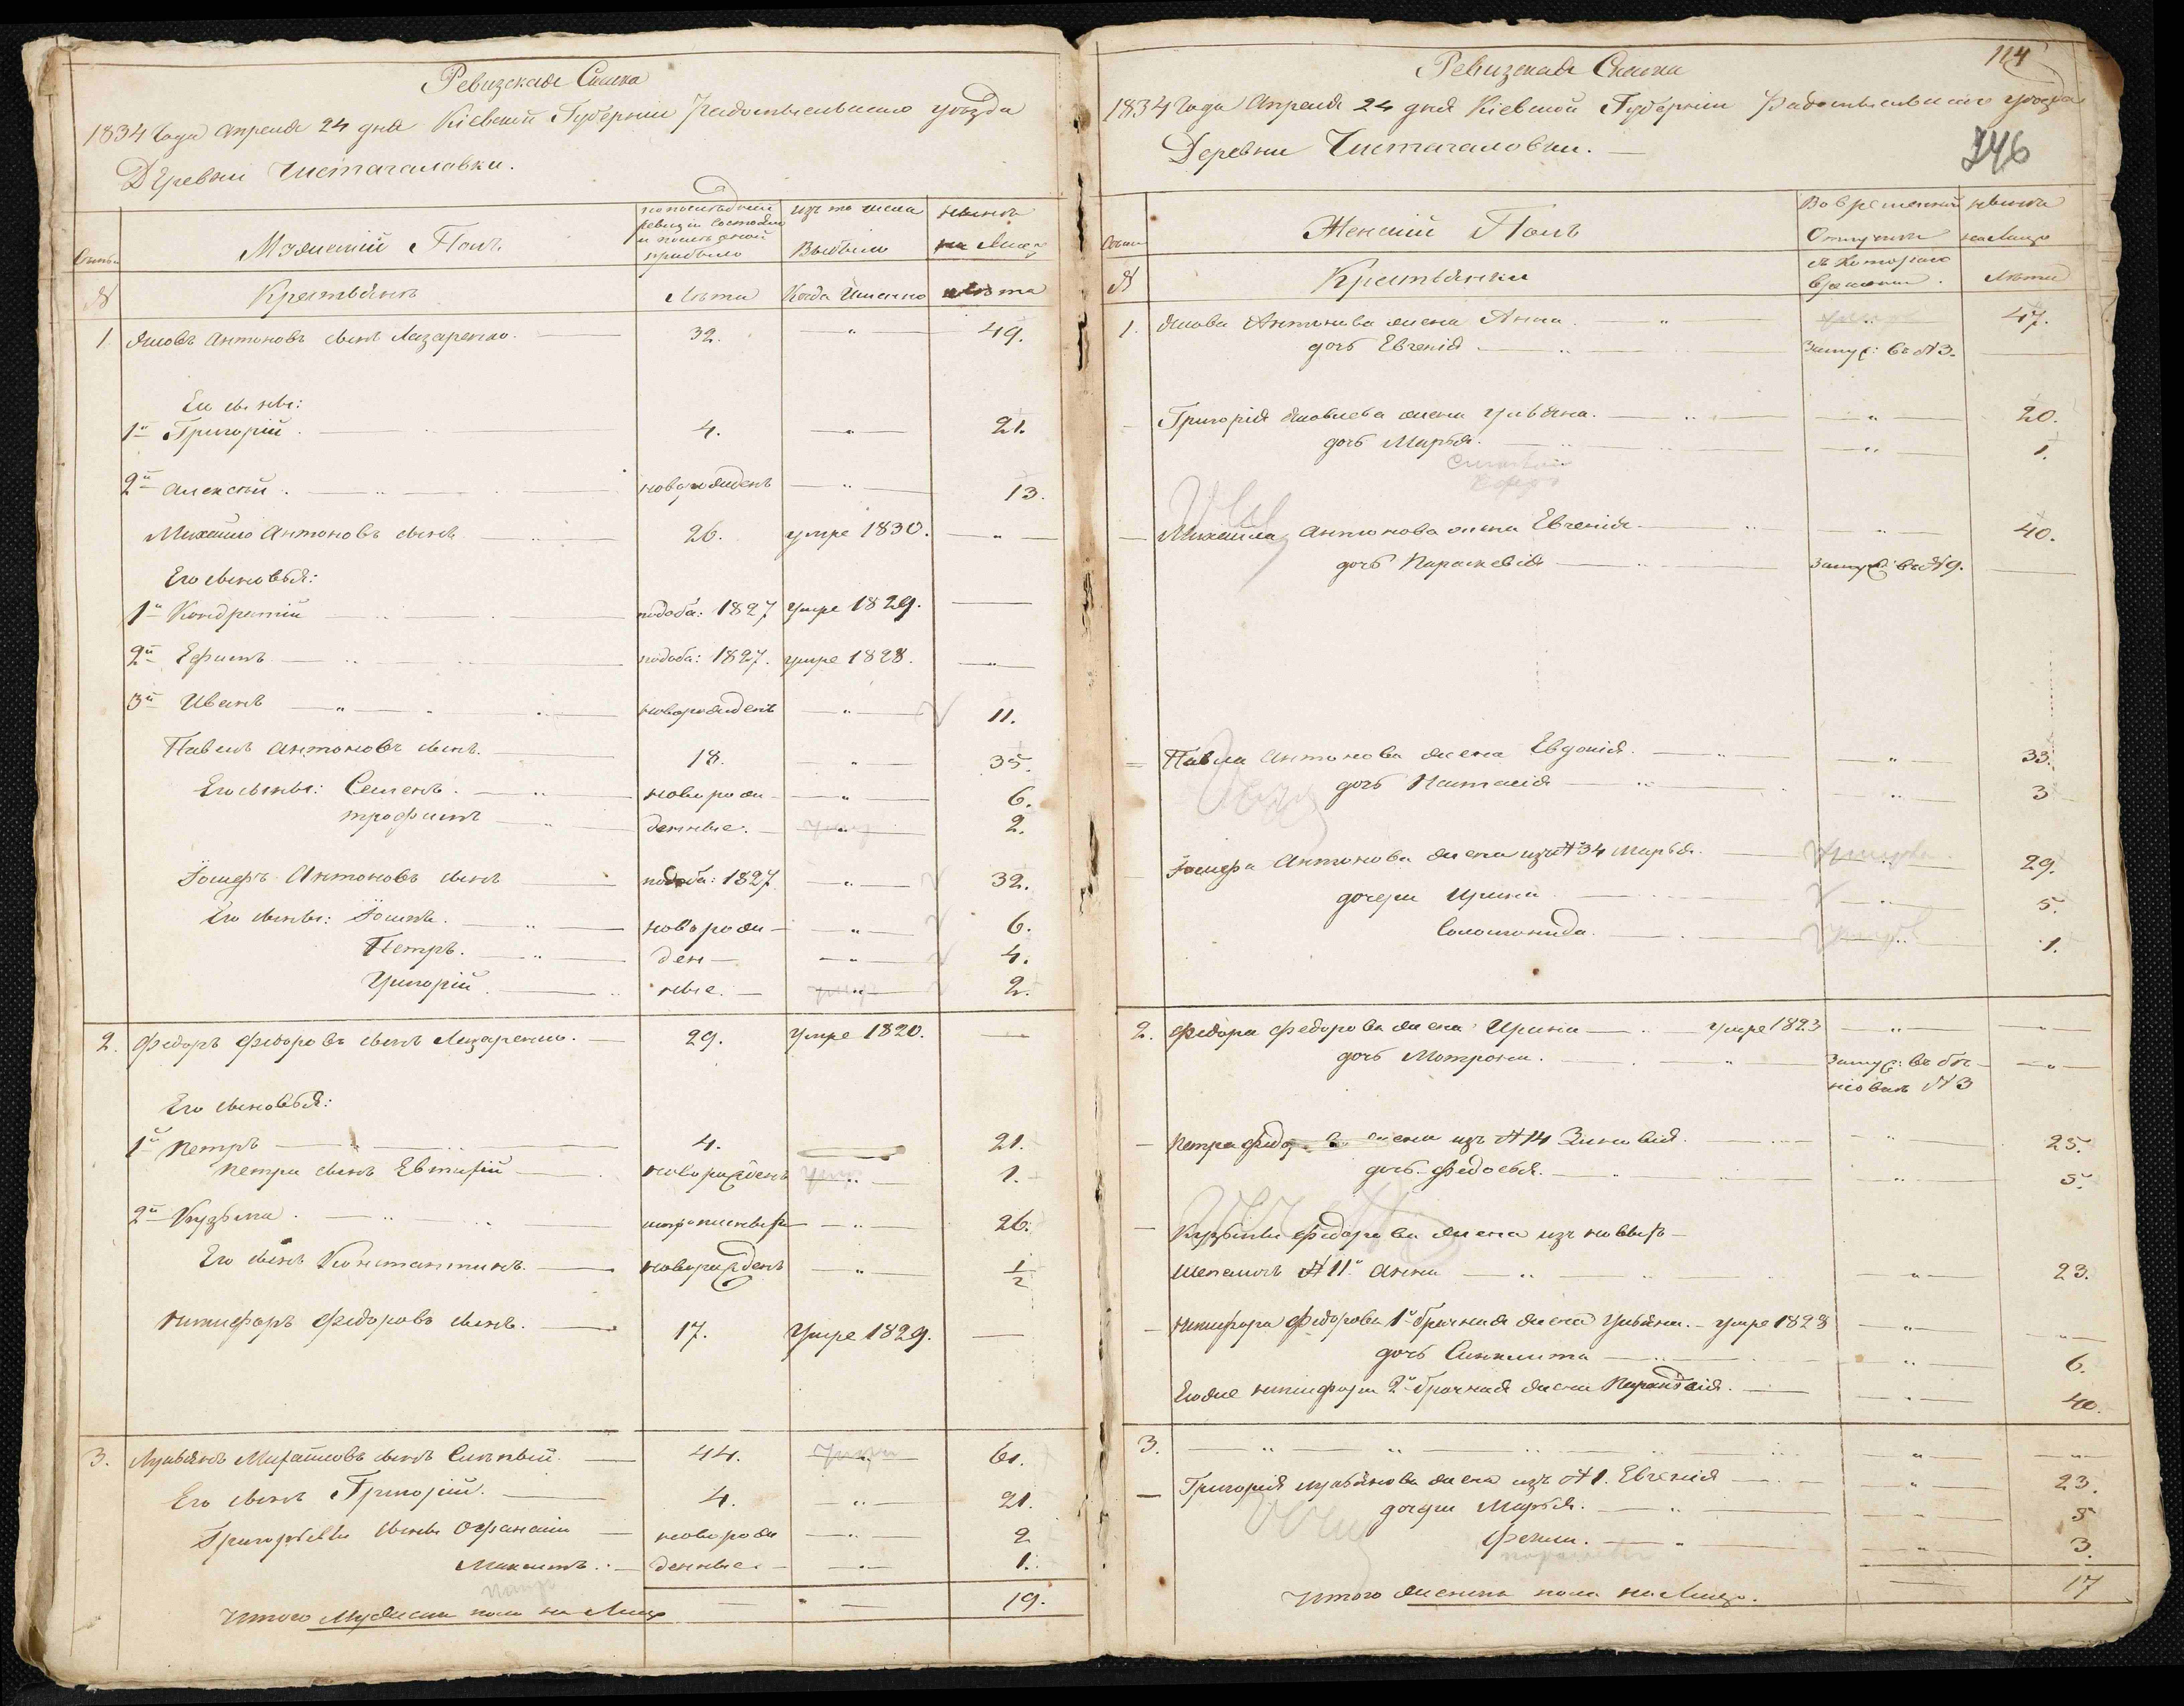 Ревизская Сказка
1834 Года Апреля 24 дня Кіевской Губерніи Радомысльскаго уѣзда
Деревни Чистагаловки.
Семьи
Мужескій Полъ.
по последней ревизіи состояло и после оной прибыло
изъ то числа Выбыло
нынѣ на Лицо
№
Крестьянъ
Лѣта
Когда Именно
лѣта
1 Яковъ Антоновъ сынъ Лазаренко. 32. " 49.
Его сыны:
1й Григорій. 4. " 21.
2й Алексѣй. новорожденъ " 13.
Михайло Антоновъ сынъ 26. умре 1830. "
Его сыновья:
1й Кондратій подоба: 1827 Умре 1829.
2й Ефимъ подоба: 1827. умре 1828. "
3й Иванъ новорожденъ " 11.
Павелъ Антоновъ сынъ. 18. " 35.
Его сыны: Семенъ. новорож- " 6.
трофимъ денные. " 2.
Іосифъ Антоновъ сынъ подоба: 1827 " 32.
Его сыны: Іосипъ. новорож- " 6.
Петръ. ден- " 4.
Григорій. ные. " 2.
2. Федоръ Федоровъ сынъ Лазаренко. 29. Умре 1820.
Его сыновья:
1й Петръ 4. 21.
Петра сынъ Евтифій новорожденъ " 1.
2й Кузьма. " 26.
Его сынъ Константинъ. новорожденъ " 1/2
Никифоръ Федоровъ сынъ. 17. Умре 1829.
3. Лукьянъ Михайловъ сынъ 44. " 61.
Его сынъ Григорій. 4. " 21.
Григорьевы сыны Офанасій новорож " 2
Максимъ. денные " 1.
Итого Мужеска пола на Лицо 19.
114
Ревизская Сказка
1834 Года Апреля 24 дня Кіевской Губерніи Радомысльскаго уѣзда
Деревни Чистагаловки.
246
Семьи
Женскій Полъ
Во временной Отлучки
нынѣ на Лицо
№
Крестьянки
съ Котораго времени.
Лѣта
1. Якова Антонова жена Анна. " 47.
дочь Евгенія " Замуж: въ №3.
Григорія Яковлева жена Ульяна. " 20.
дочь Марья. " 1.
Михайла Антонова жена Евгенія " 40.
дочь Параскевія Замуж: въ №9.
Павла Антонова жена Евдокія. " 33.
дочь Наталія " 3
Іосифа Антонова жена изъ №34 Марья. " 29.
дочери Ирина " 5.
Соломонида. " 1.
2. Федора Федорова жена Ирина умре 1823 " "
дочь Мотрона. " Замуж: въ
№3
Петра жена изъ №14 Зиновія. " 25.
дочь Федосья. " 5.
Кузьмы Федорова жена изъ новыхъ
Шепеличъ №11й Анна " 23.
Никифора Федорова 1й брачная жена Ульяна. умре 1828 " "
дочь Синклита " 6.
Егоже Никифора 2й брачная жена " 40.
3. " " " "
Григорія Лукьянова жена изъ №1. Евгенія " 23.
дочери Марья. " 5
Фекла. " 3.
Итого женска пола на Лицо. 17